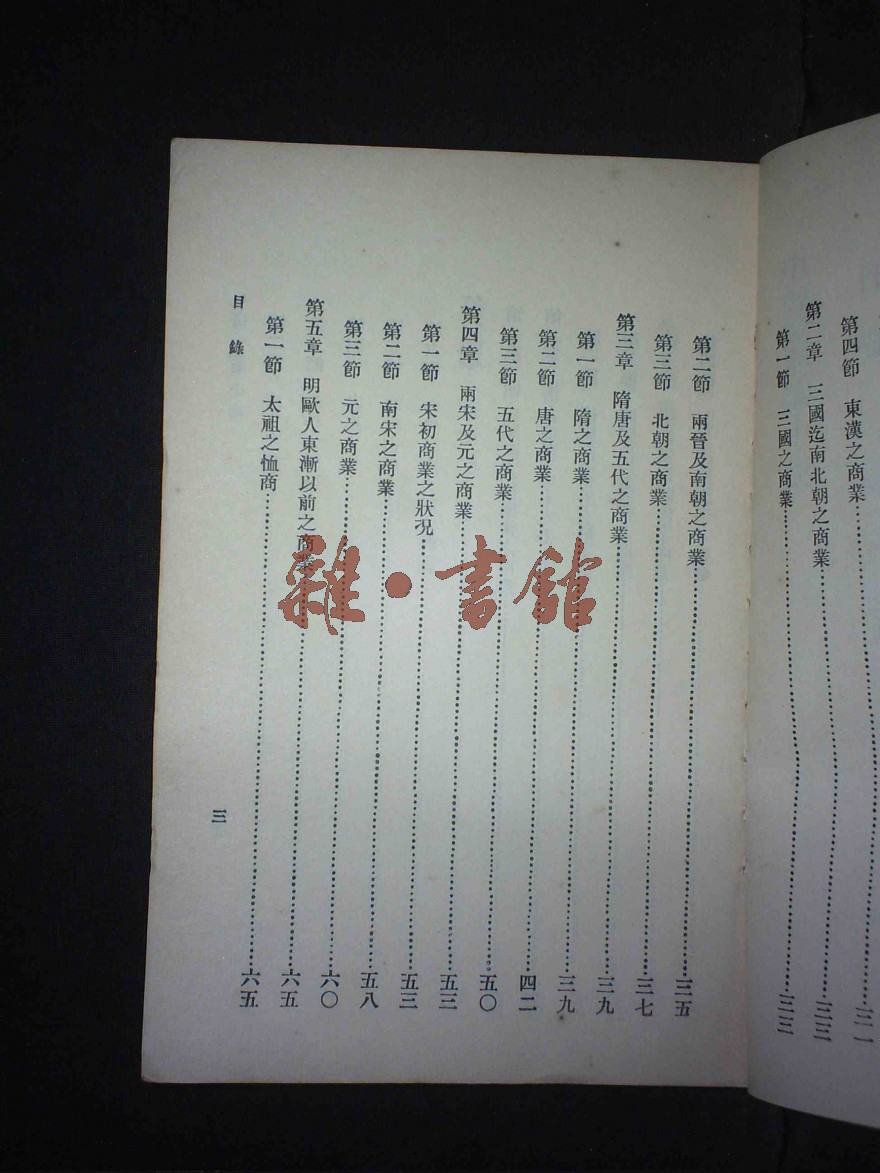 第四節　東漢之商業……三一
第二章　三國迄南北朝之商業……三三
第一節　三國之商業……三三
第二節　兩晉及南朝之商業……三五
第三節　北朝之商業……三七
第三章　隋唐及五代之商業……三九
第一節　隋之商業……三九
第二節　唐之商業……四二
第三節　五代之商業……五〇
第四章　兩宋及元之商業……五三
第一節　宋初商業之狀況……五三
第二節　南宋之商業……五八
第三節　元之商業……六〇
第五章　明歐人東漸以前之商業……六五
第一節　太祖之恤商……六五
目錄
三
雜·書館